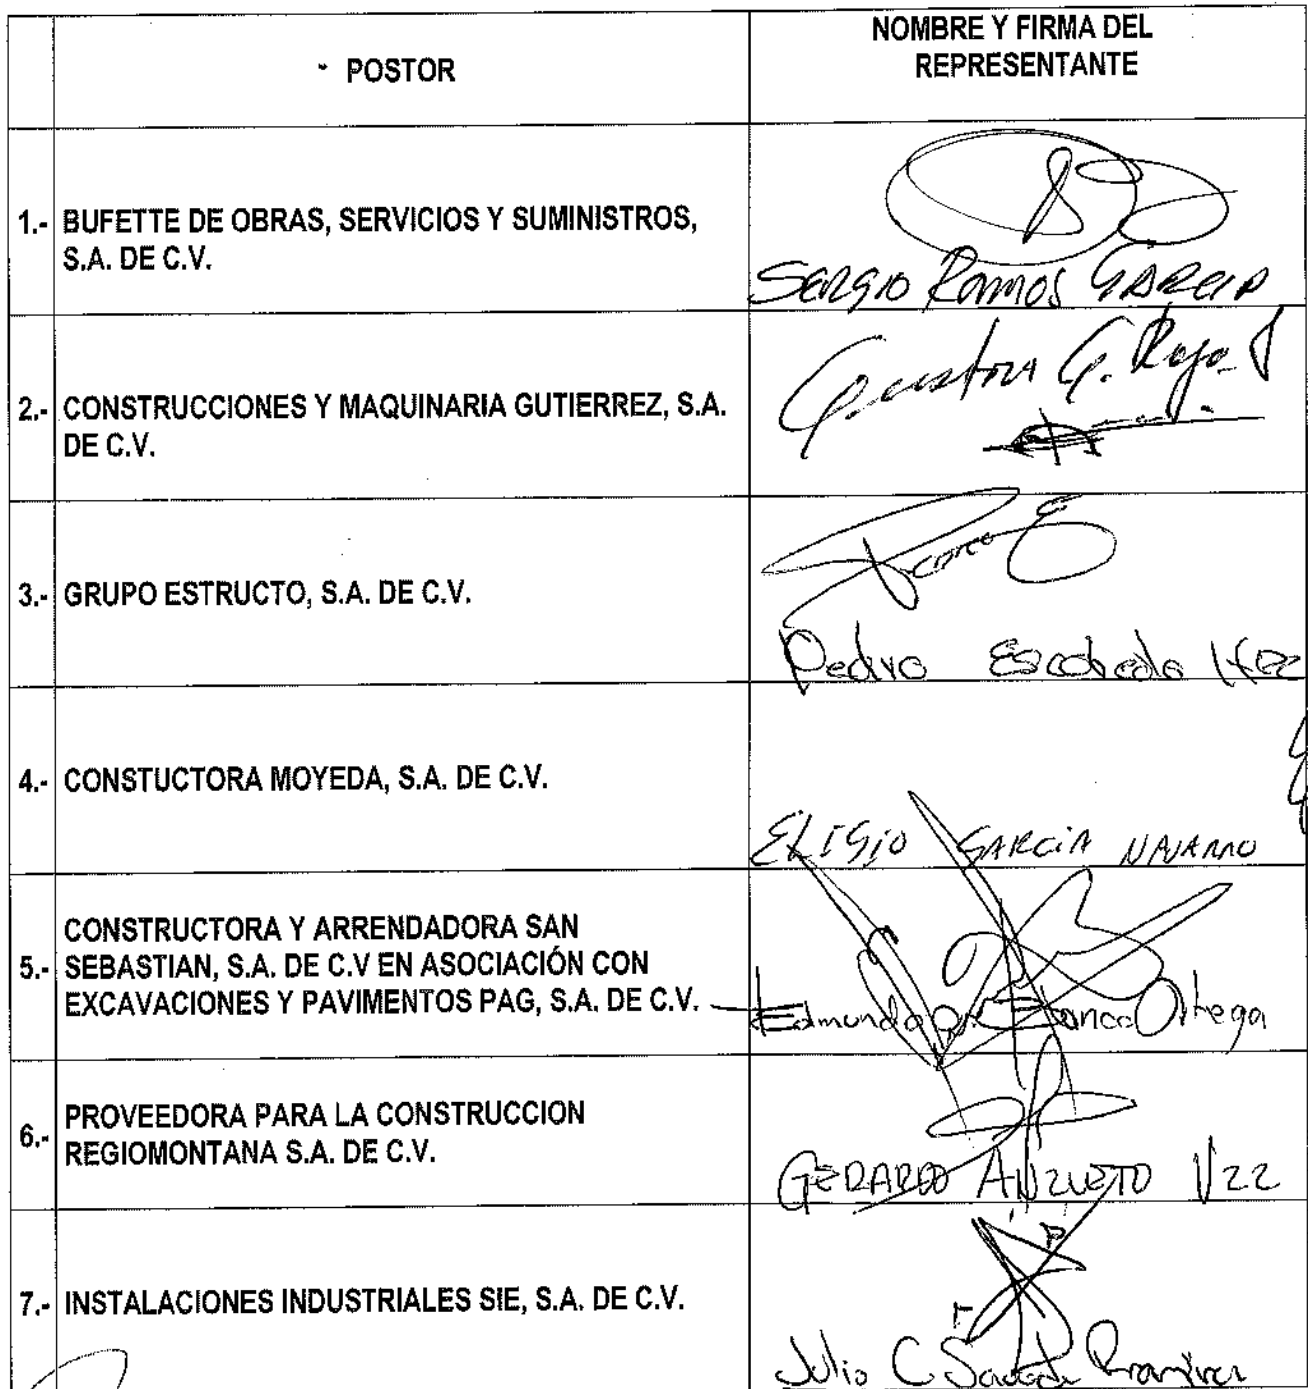 POSTOR
NOMBRE Y FIRMA DEL
REPRESENTANTE
1.- BUFETTE DE OBRAS, SERVICIOS Y SUMINISTROS,
S.A. DE C.V.
SERGIO RAMOS GARCIA
2.- CONSTRUCCIONES Y MAQUINARIA GUTIERREZ, S.A.
DE C.V.
G.
3.- GRUPO ESTRUCTO, S.A. DE C.V.
Pedro Escobedo
4.- CONSTUCTORA MOYEDA, S.A. DE C.V.
ELIGIO GARCIA NAVARRO
CONSTRUCTORA Y ARRENDADORA SAN
5.- SEBASTIAN, S.A. DE C.V EN ASOCIACIÓN CON
EXCAVACIONES Y PAVIMENTOS PAG, S.A. DE C.V.
Edmundo Blanco Ortega
6.- PROVEEDORA PARA LA CONSTRUCCION
REGIOMONTANA S.A. DE C.V.
GERARDO ANZUETO VZZ
7.- INSTALACIONES INDUSTRIALES SIE, S.A. DE C.V.
Julio C Ramirez